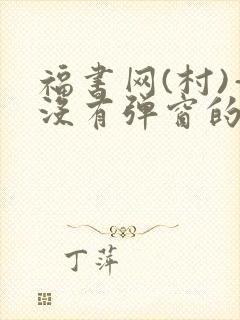 福书网(村)-
没有弹窗的
丁萍